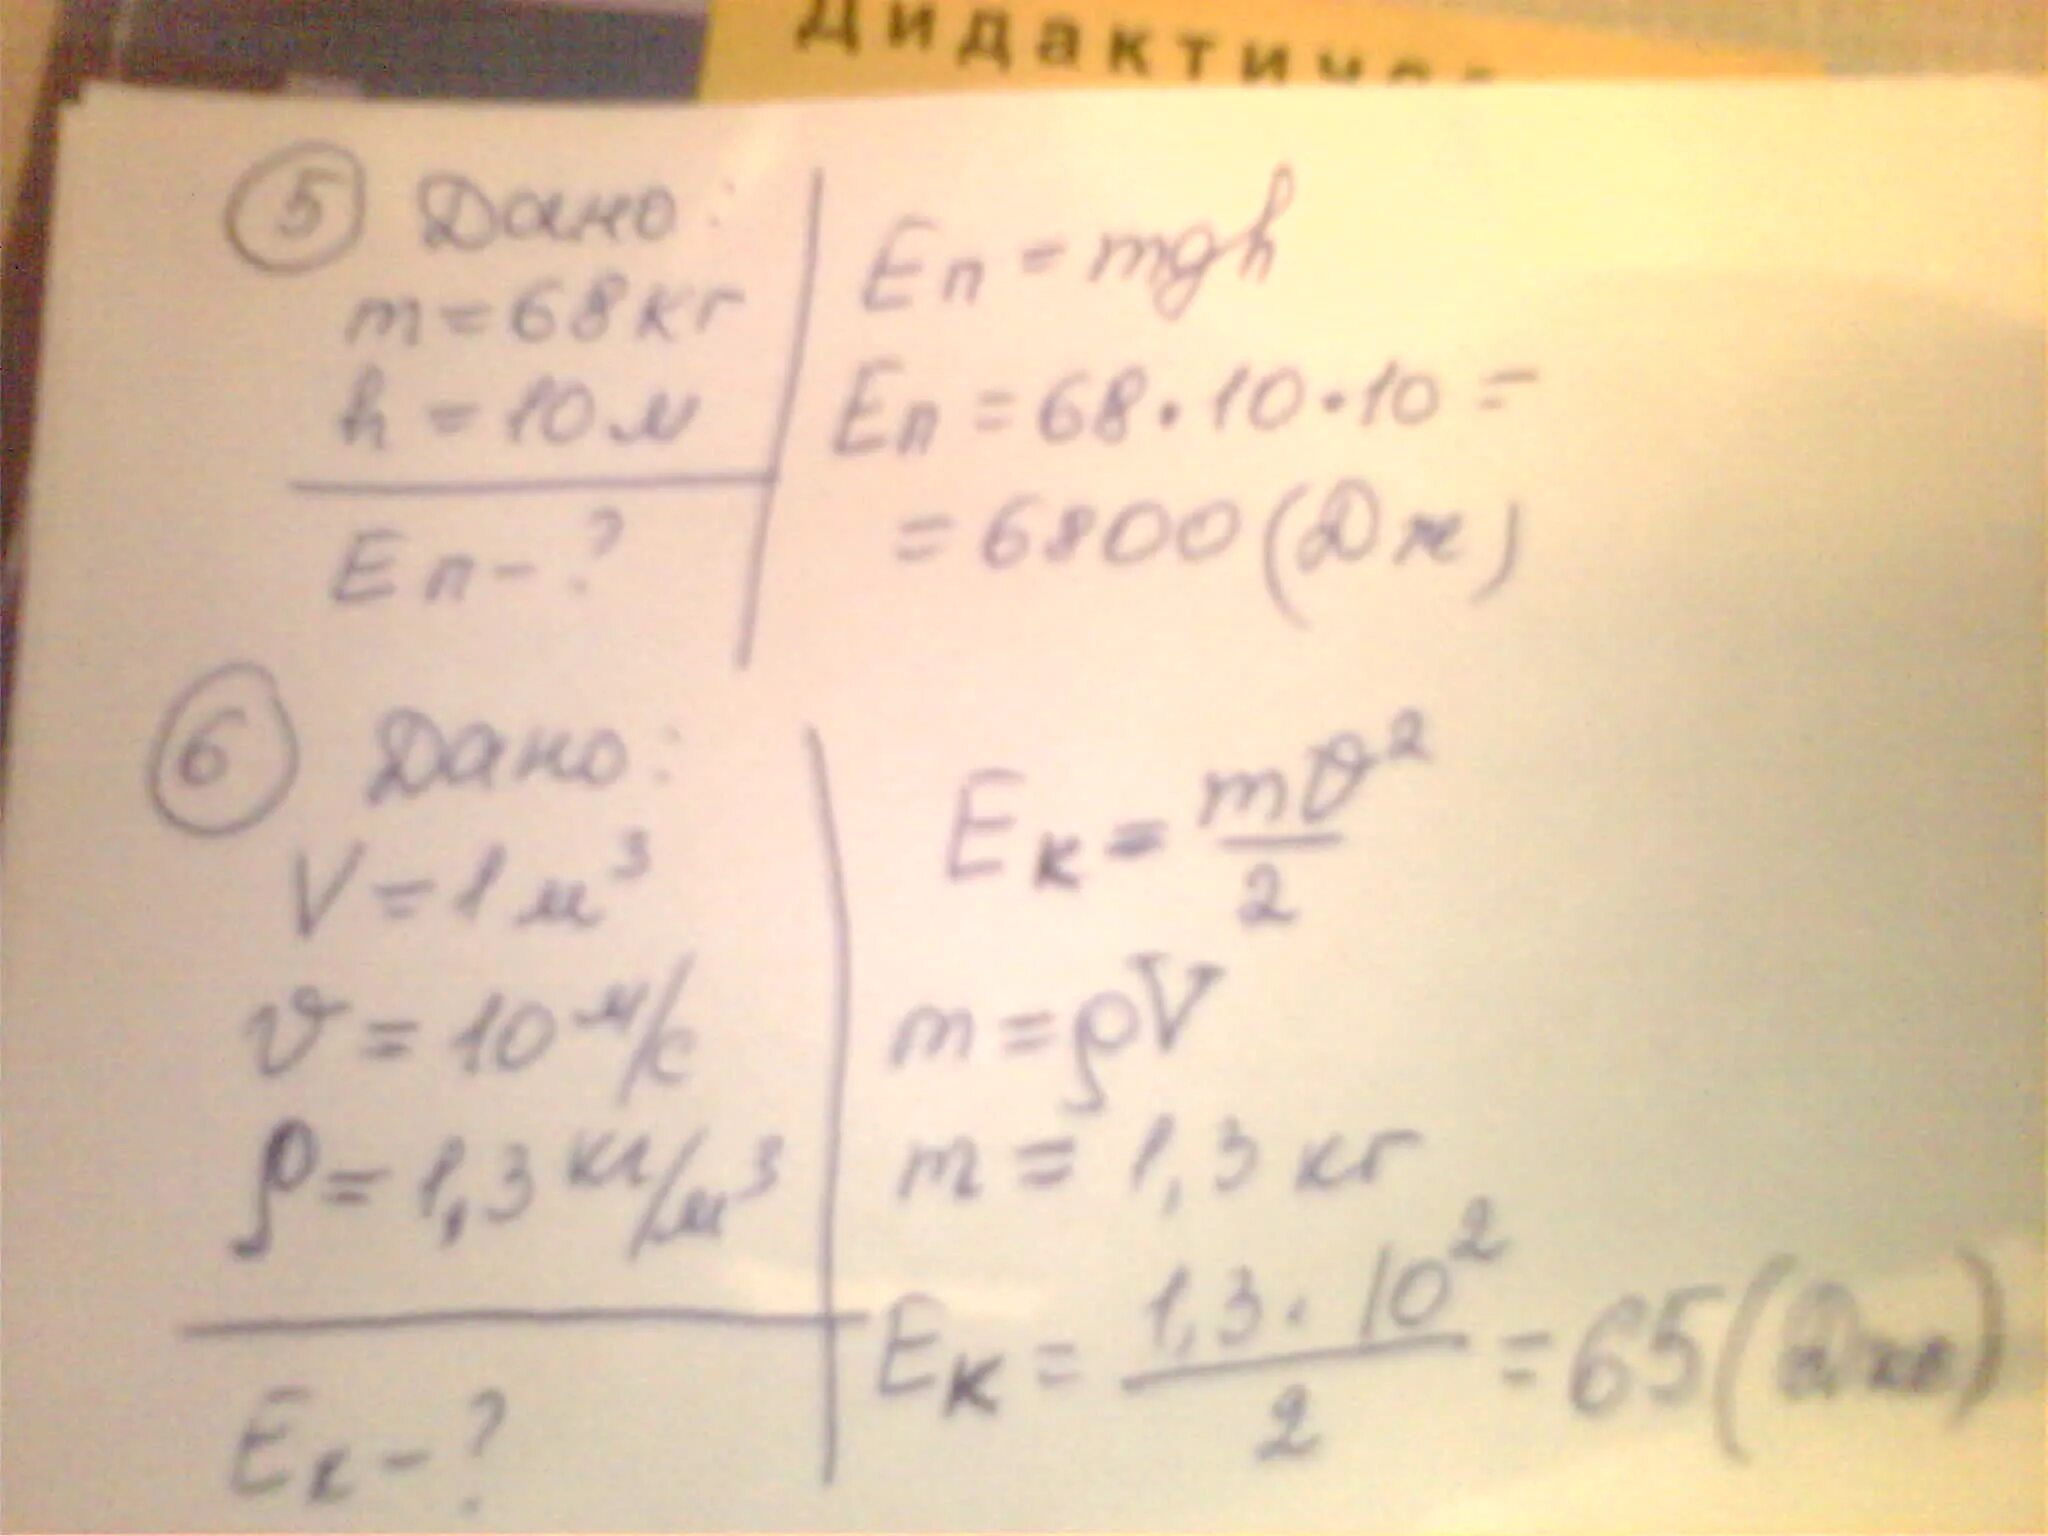 Дидактичес
5 Дано:
m = 68 кг
h = 10 м
Eп - ?
Eп = mgh
Eп = 68 · 10 · 10 =
= 6800 (Дж)
6 Дано:
V = 1 м³
υ = 10 м/с
ρ = 1,3 кг/м³
Eк - ?
Eк = mυ²/2
m = ρV
m = 1,3 кг
Eк = 1,3 · 10²/2 = 65 (Дж)